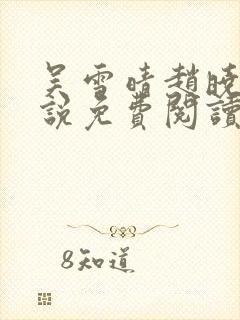 吴雪晴趙晓
說免費閱讀
8知道